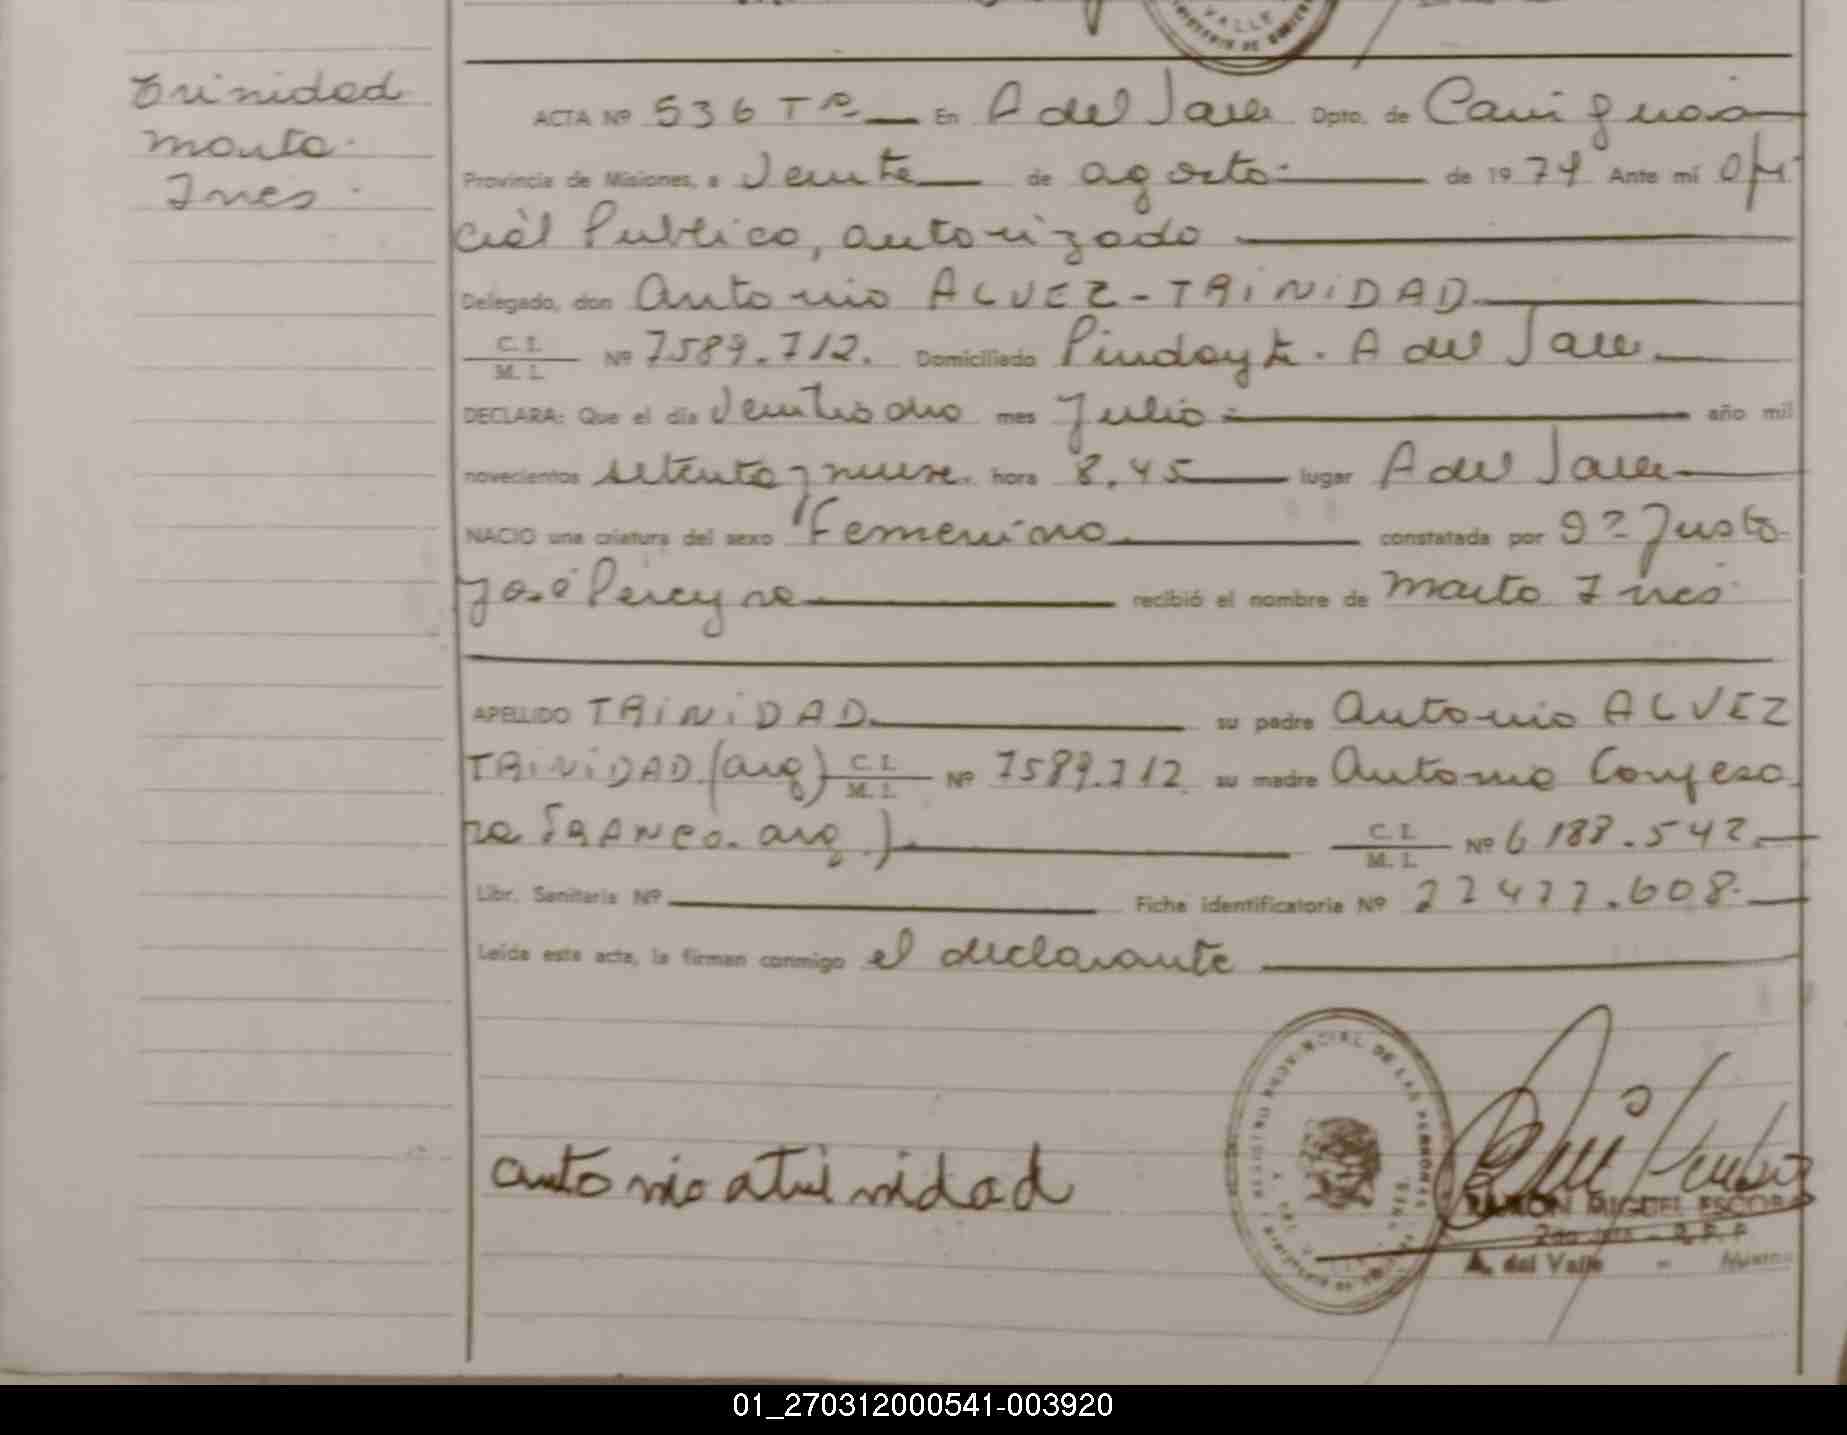 VALLE
Trinidad
Marta
Ines
ACTA Nº 536 Tº En A del Valle Dpto. de Cainguás
Provincia de Misiones, a Veinte de agosto de 1979 Ante mí Ofi
cial Publico, autorizado
Delegado, don Antonio ALVEZ-TRINIDAD
C. I. / M. I. Nº 7589.712. Domiciliado Pindayti. A del Valle
DECLARA: Que el día Veintiocho mes Julio año mil
novecientos setenta y nueve. hora 8.45 lugar A del Valle
NACIO una criatura del sexo Femenino constatada por Justo
José Pereyra recibió el nombre de Marta Ines
APELLIDO TRINIDAD su padre Antonio ALVEZ
TRINIDAD (arg) C. I. / M. I. Nº 7589.712 su madre Antonia Confeso
ra FRANCO. arg.) C. I. / M. I. Nº 6188.542
Libr. Sanitaria Nº Ficha identificatoria Nº 27477.608
Leída esta acta, la firman conmigo el declarante
REGISTRO PROVINCIAL DE LAS PERSONAS
antonio atrinidad
RAMON MIGUEL ESCOBA
A. del Valle - Misiones
01_270312000541-003920